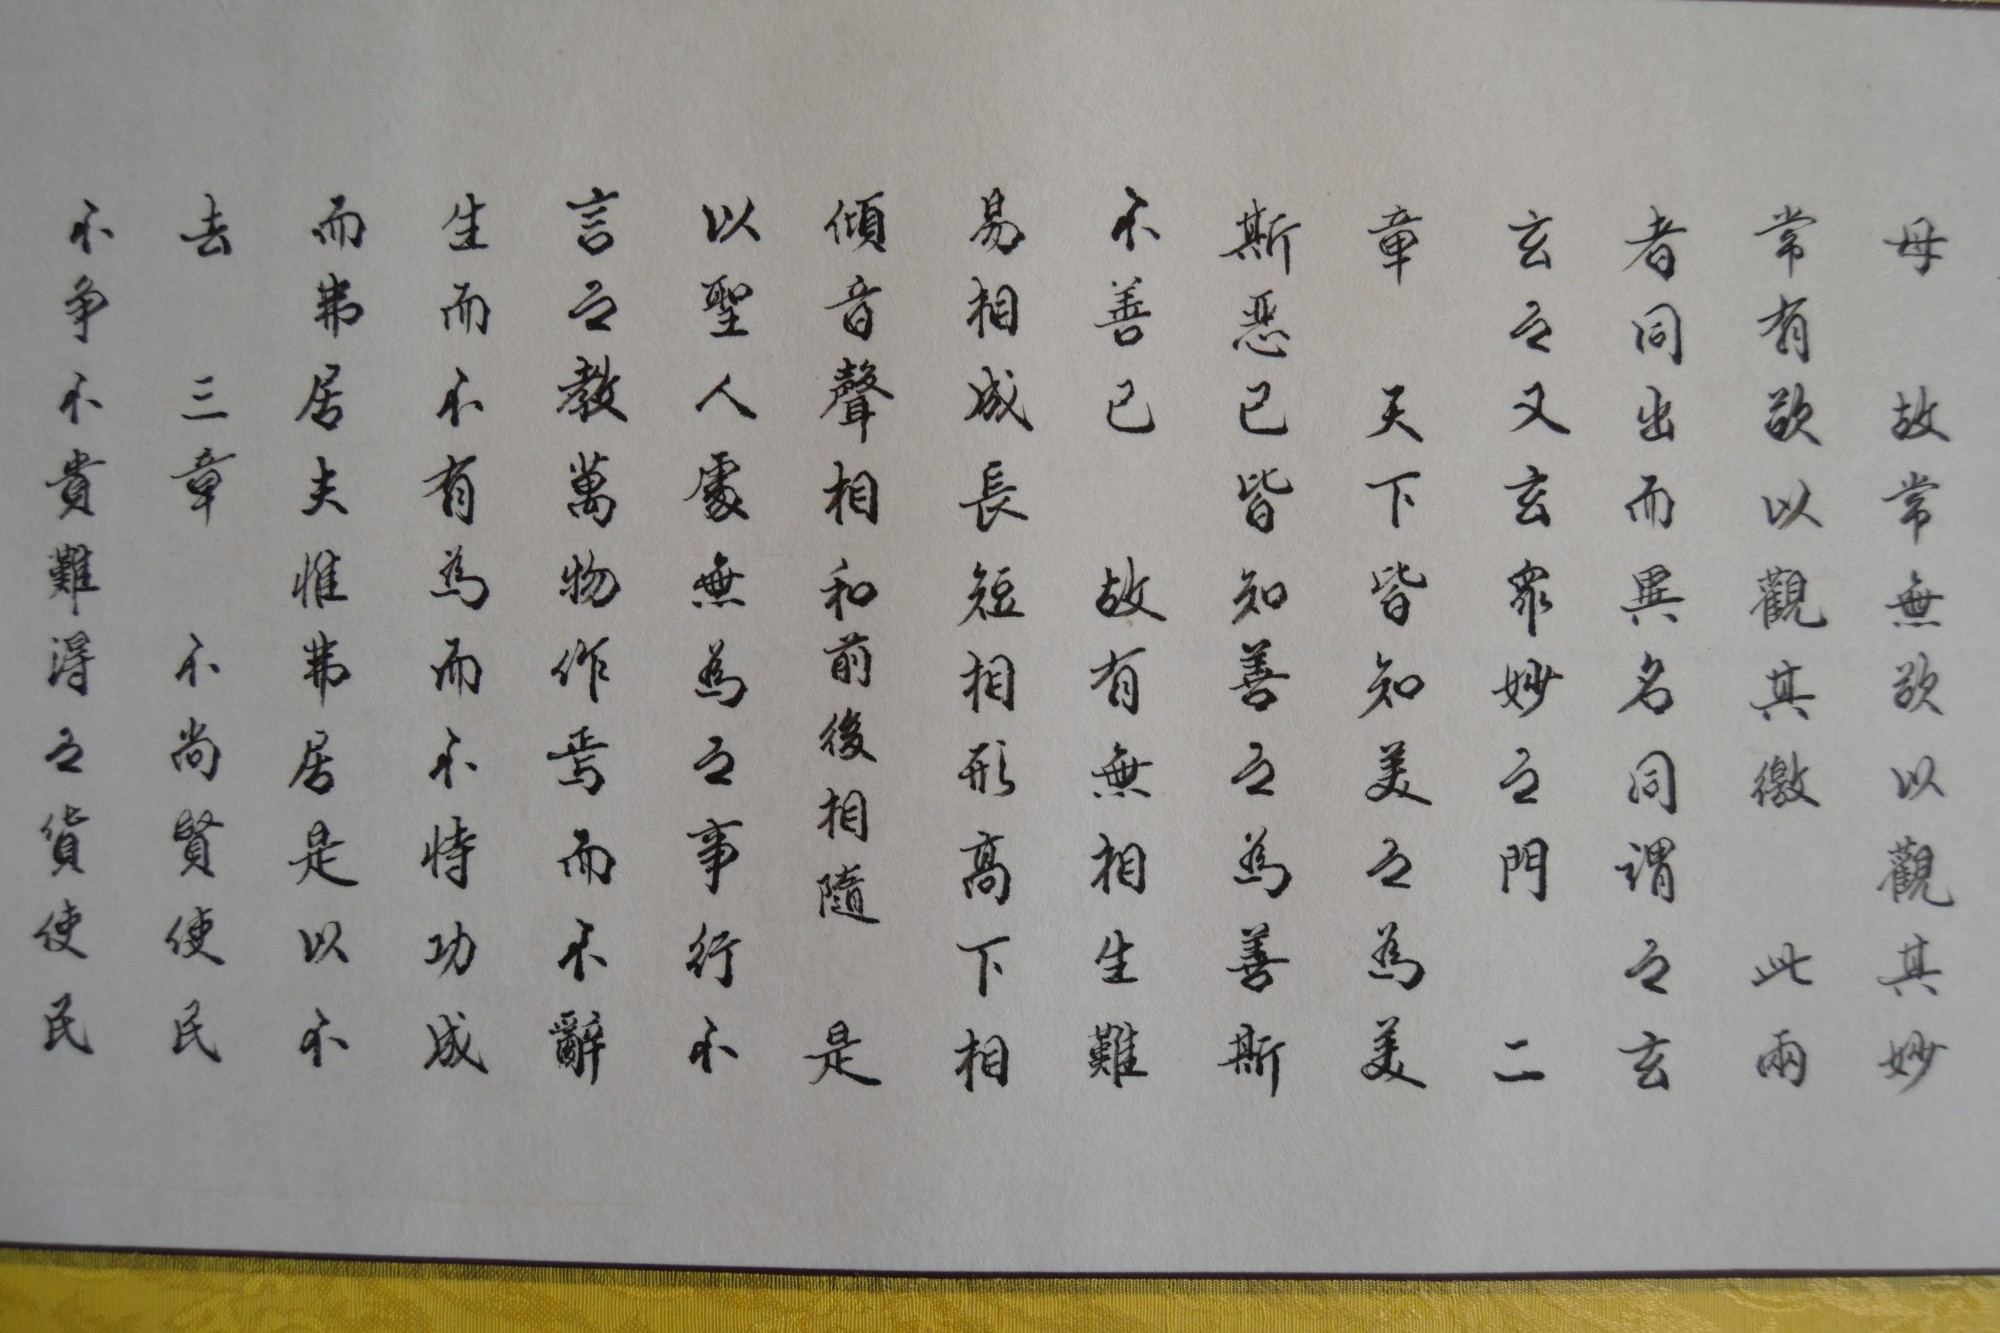 母　故常無欲以觀其妙
常有欲以觀其徼　此兩
者同出而異名同謂之玄
玄之又玄眾妙之門　二
章　天下皆知美之為美
斯惡已皆知善之為善斯
不善已　故有無相生難
易相成長短相形高下相
傾音聲相和前後相隨　是
以聖人處無為之事行不
言之教萬物作焉而不辭
生而不有為而不恃功成
而弗居夫惟弗居是以不
去　三章　不尚賢使民
不爭不貴難得之貨使民